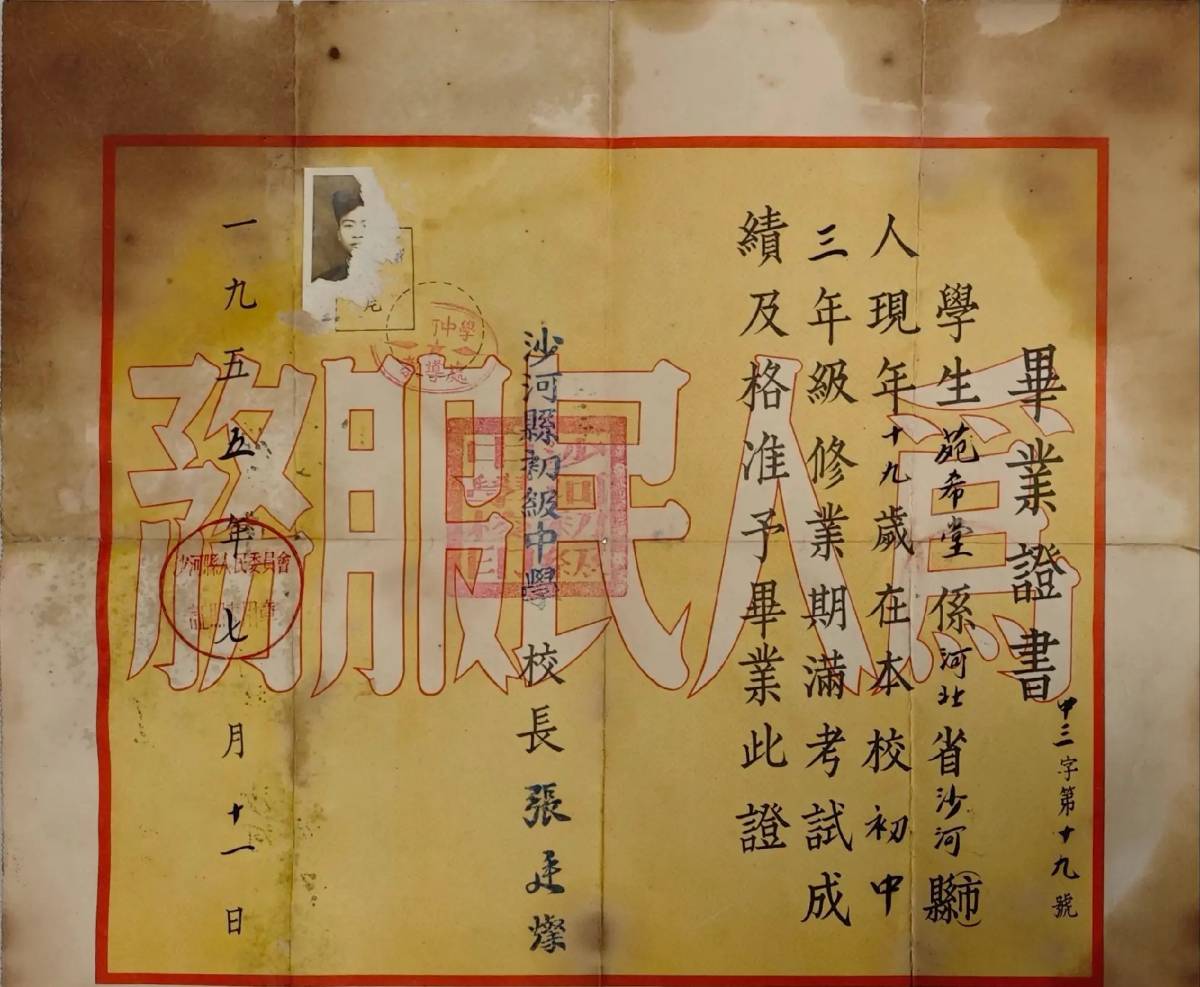 畢業證書
中三字第十九號
學生苑希堂係河北省沙河縣(市)
人現年十九歲在本校初中
三年級修業期滿考試成
績及格准予畢業此證
沙河縣初級中學校長張廷燦
一九五五年七月十一日
為人民服務
沙河縣人民委員會
中學
導處